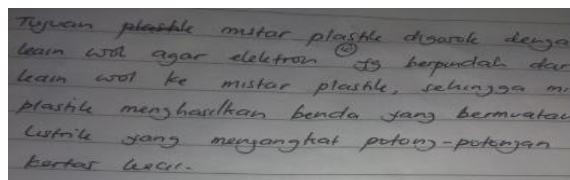 Tujuan plastik mistar plastik digosok denga
kain wol agar elektron (e) yg berpindah dar
kain wol ke mistar plastik, sehingga mi
plastik menghasilkan benda yang bermuatan
listrik yang mengangkat potong-potongan
kertas kecil.